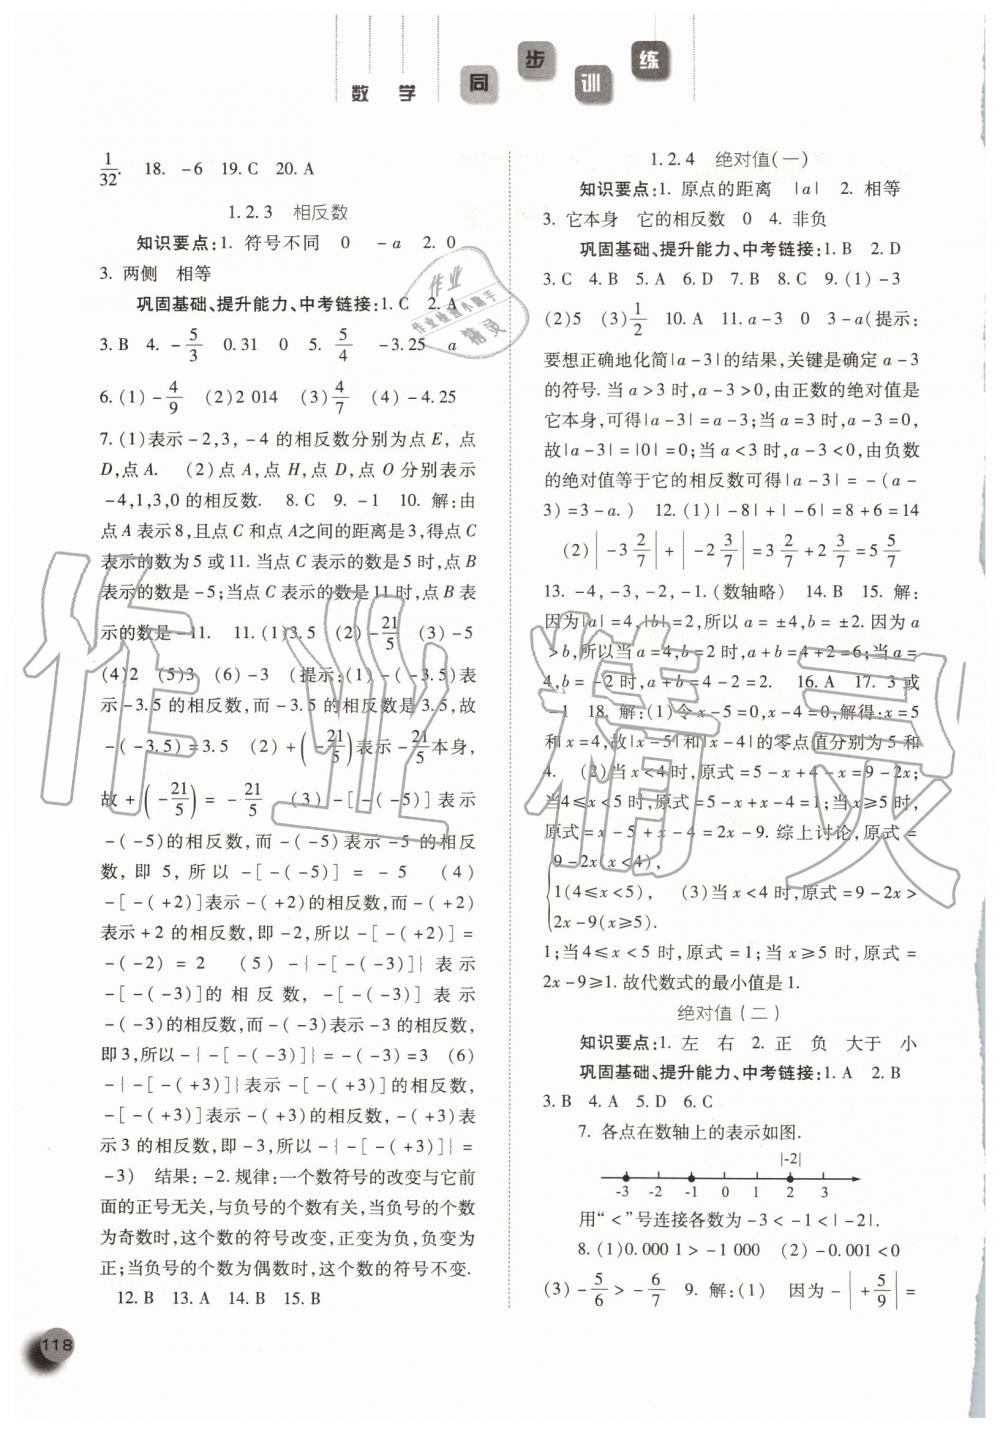 数 学 同 步 训 练
1/32. 18. －6 19. C 20. A
1.2.3 相反数
知识要点:1. 符号不同 0 －a 2. 0
3. 两侧 相等
巩固基础、提升能力、中考链接:1. C 2. A
3. B 4. －5/3 0.31 0 5. 5/4 －3.25 a
6. (1)－4/9 (2)2 014 (3)4/7 (4)－4.25
7. (1)表示－2,3,－4 的相反数分别为点 E, 点
D,点 A. (2)点 A,点 H,点 D,点 O 分别表示
－4,1,3,0 的相反数. 8. C 9. －1 10. 解:由
点 A 表示 8,且点 C 和点 A 之间的距离是 3,得点 C
表示的数为 5 或 11. 当点 C 表示的数是 5 时,点 B
表示的数是－5;当点 C 表示的数是 11 时,点 B 表
示的数是－11. 11. (1)3.5 (2)－21/5 (3)－5
(4)2 (5)3 (6)－3 (提示:(1)－(－3.5)表
示－3.5 的相反数,而－3.5 的相反数是 3.5,故
－(－3.5)＝3.5 (2)＋(－21/5)表示－21/5本身,
故＋(－21/5)＝－21/5 (3)－[－(－5)]表示
－(－5)的相反数,而－(－5)表示－5 的相反
数,即 5,所以－[－(－5)]＝－5 (4)
－[－(＋2)]表示－(＋2)的相反数,而－(＋2)
表示＋2 的相反数,即－2,所以－[－(＋2)]＝
－(－2)＝2 (5)－{－[－(－3)]}表示
－[－(－3)]的相反数,－[－(－3)]表示
－(－3)的相反数,而－(－3)表示－3 的相反数,
即 3,所以－{－[－(－3)]}＝－(－3)＝3 (6)
－{－[－(＋3)]}表示－[－(＋3)]的相反数,
－[－(＋3)]表示－(＋3)的相反数,－(＋3)表
示 3 的相反数,即－3,所以－{－[－(＋3)]}＝
－3) 结果:－2. 规律:一个数符号的改变与它前
面的正号无关,与负号的个数有关,当负号的个数
为奇数时,这个数的符号改变,正变为负,负变为
正;当负号的个数为偶数时,这个数的符号不变.
12. B 13. A 14. B 15. B
118
1.2.4 绝对值(一)
知识要点:1. 原点的距离 |a| 2. 相等
3. 它本身 它的相反数 0 4. 非负
巩固基础、提升能力、中考链接:1. B 2. D
3. C 4. B 5. A 6. D 7. B 8. C 9. (1)－3
(2)5 (3)1/2 10. A 11. a－3 0 3－a(提示:
要想正确地化简|a－3|的结果,关键是确定 a－3
的符号. 当 a＞3 时,a－3＞0,由正数的绝对值是
它本身,可得|a－3|＝a－3;当 a＝3 时,a－3＝0,
故|a－3|＝|0|＝0;当 a＜3 时,a－3＜0,由负数
的绝对值等于它的相反数可得|a－3|＝－(a－
3)＝3－a.) 12. (1)|－8|＋|－6|＝8＋6＝14
(2)|－3 2/7|＋|－2 3/7|＝3 2/7＋2 3/7＝5 5/7
13. －4,－3,－2,－1. (数轴略) 14. B 15. 解:
因为|a|＝4,|b|＝2,所以 a＝±4,b＝±2. 因为 a
＞b,所以当 a＝4,b＝2 时,a＋b＝4＋2＝6;当 a＝
4,b＝－2 时,a＋b＝4－2＝2. 16. A 17. 3 或
－1 18. 解:(1)令 x－5＝0,x－4＝0,解得:x＝5
和 x＝4,故|x－5|和|x－4|的零点值分别为 5 和
4. (2)当 x＜4 时,原式＝5－x＋4－x＝9－2x;
当 4≤x＜5 时,原式＝5－x＋x－4＝1;当 x≥5 时,
原式＝x－5＋x－4＝2x－9. 综上讨论,原式＝
{9－2x(x＜4),
1(4≤x＜5), (3)当 x＜4 时,原式＝9－2x＞
2x－9(x≥5).
1;当 4≤x＜5 时,原式＝1;当 x≥5 时,原式＝
2x－9≥1. 故代数式的最小值是 1.
绝对值(二)
知识要点:1. 左 右 2. 正 负 大于 小
巩固基础、提升能力、中考链接:1. A 2. B
3. B 4. A 5. D 6. C
7. 各点在数轴上的表示如图.
|-2|
-3 -2 -1 0 1 2 3
用“＜”号连接各数为－3＜－1＜|－2|.
8. (1)0.000 1＞－1 000 (2)－0.001＜0
(3)－5/6＞－6/7 9. 解:(1) 因为－|＋5/9|＝
作业
作业检查小助手
精灵
作业精灵